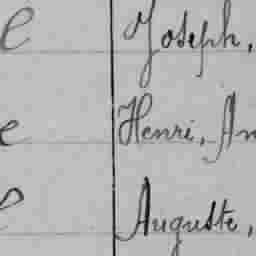 e Joseph,
e Henri, An
e Auguste,